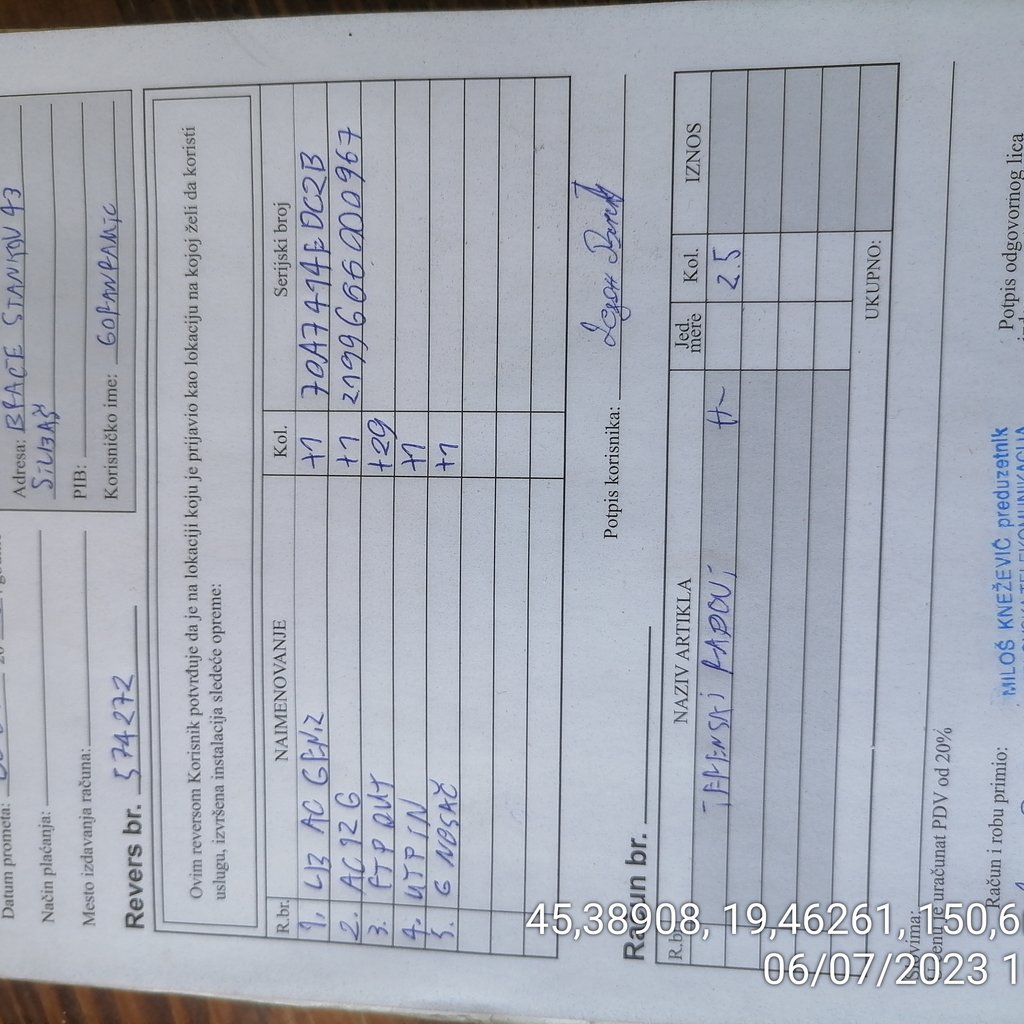 Datum prometa:
Način plaćanja:
Mesto izdavanja računa:
Revers br. 574272
Adresa: BRAĆE STANKOV 43
SIVBAŠ
PIB:
Korisničko ime: GORANRAMIC
Ovim reversom Korisnik potvrđuje da je na lokaciji koju je prijavio kao lokaciju na kojoj želi da koristi
uslugu, izvršena instalacija sledeće opreme:
R.br. NAIMENOVANJE Kol. Serijski broj
1. LB AC GEN2 +1 70A7414FDC2B
2. AC12G +1 2199666000967
3. FTP OUT +29
4. UTP IN +1
5. G NOSAČ +1
Potpis korisnika:
Račun br.
R.b NAZIV ARTIKLA Jed. mere Kol. IZNOS
TERENSKI RADOVI H 2.5
UKUPNO:
uračunat PDV od 20%
Račun i robu primio:
Potpis odgovornog lica
MILOŠ KNEŽEVIĆ preduzetnik
TELEKOMUNIKACIJA
45,38908, 19,46261, 150,6
06/07/2023 1